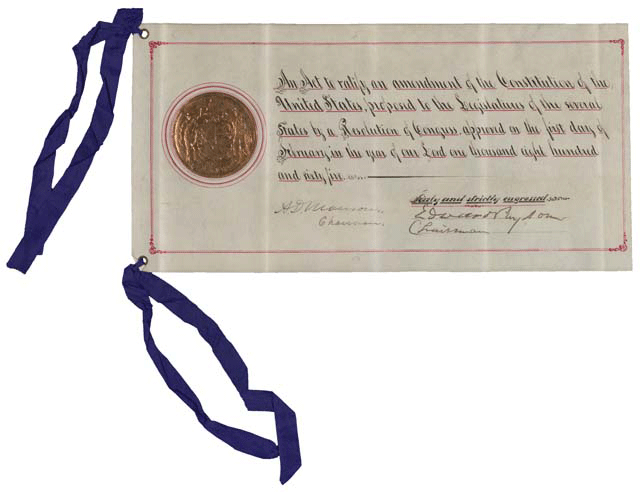 An Act to ratify an amendment of the Constitution of the
United States, proposed to the Legislatures of the several
States by a Resolution of Congress approved on the first day of
February, in the year of our Lord one thousand eight hundred
and sixty five
Chairman.
and strictly engrossed
Chairman